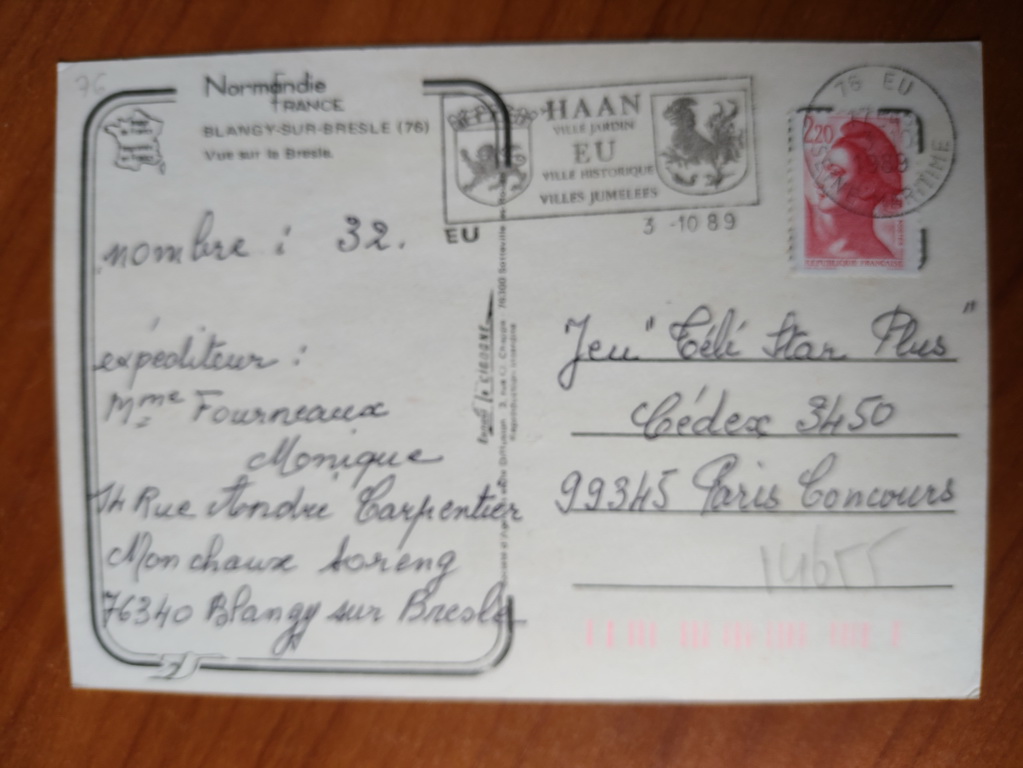 76
Normandie
FRANCE
BLANGY-SUR-BRESLE (76)
Vue sur la Bresle.
HAAN
VILLE JARDIN
EU
VILLE HISTORIQUE
VILLES JUMELEES
EU
3 -10 89
76 EU
SEINE MARITIME
2,20
REPUBLIQUE FRANÇAISE
nombre : 32.
expéditeur :
Mme Fourneaux
Monique
14 Rue Andre Carpentier
Monchaux Soreng
76340 Blangy sur Bresle
LE CIGOGNE
Jeu "Télé Star Plus"
Cédex 3450
99345 Paris Concours
14655